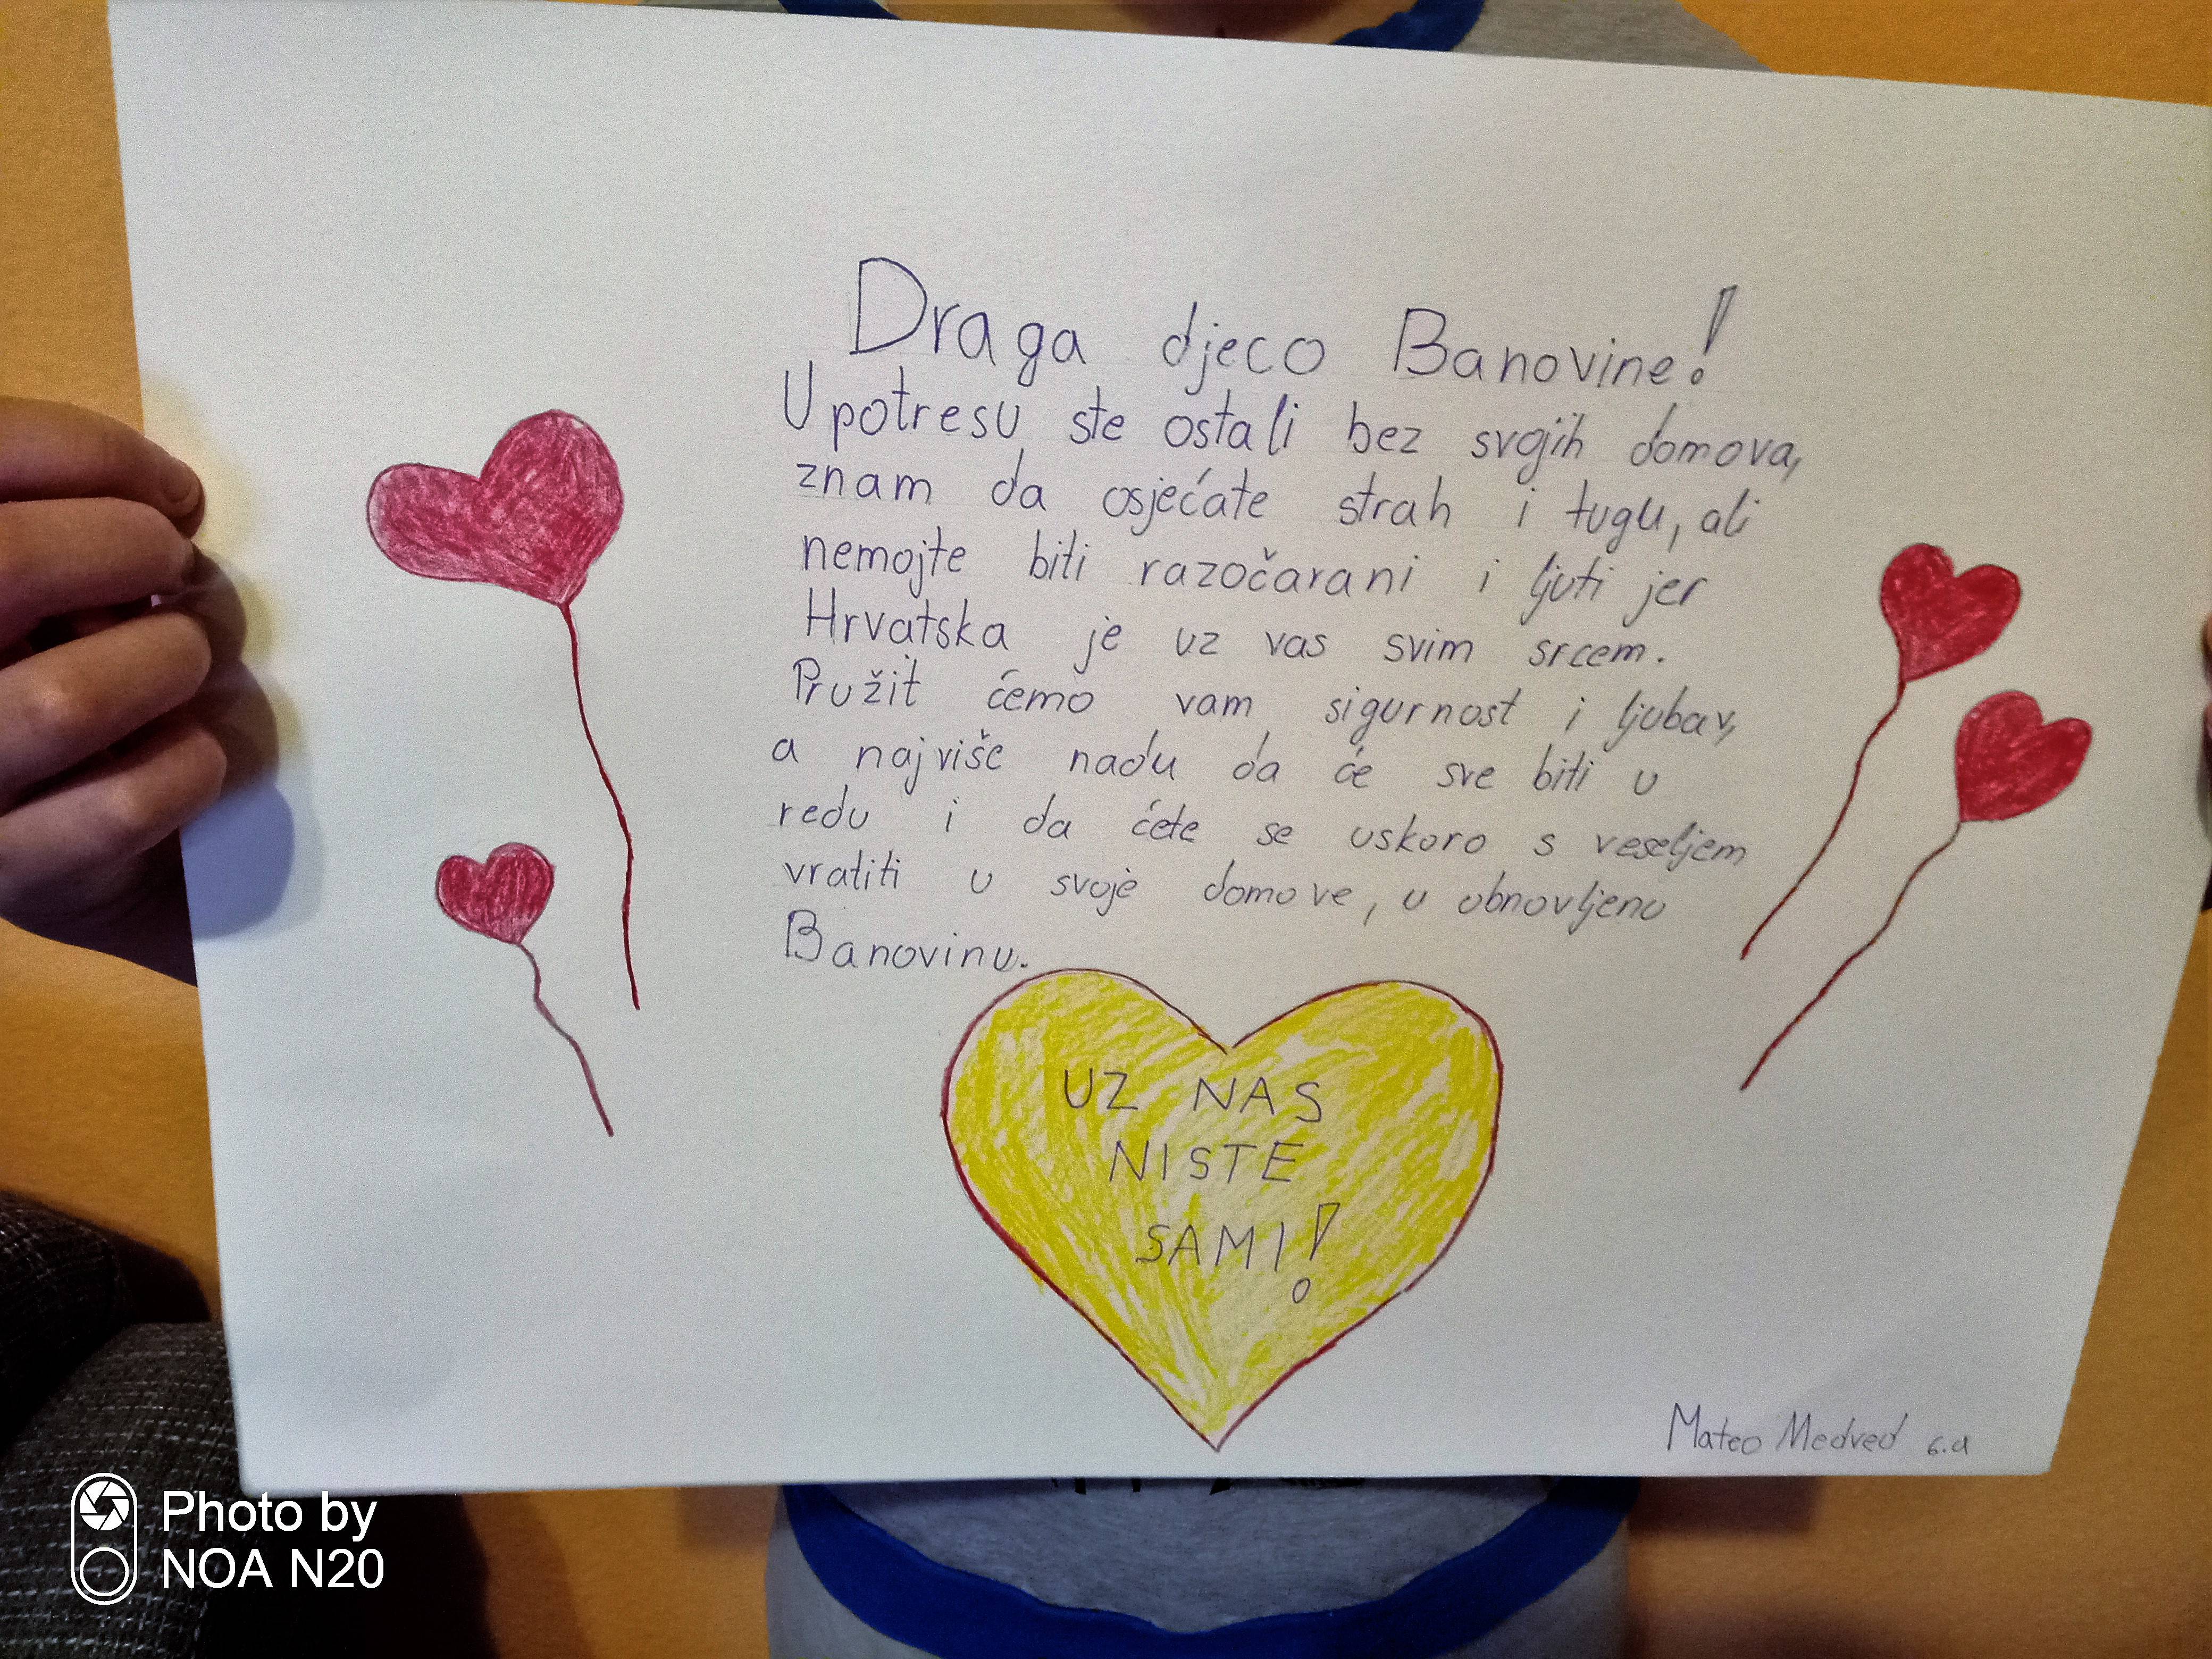 Draga djeco Banovine!
U potresu ste ostali bez svojih domova,
znam da osjećate strah i tugu, ali
nemojte biti razočarani i ljuti jer
Hrvatska je uz vas svim srcem.
Pružit ćemo vam sigurnost i ljubav,
a najviše nadu da će sve biti u
redu i da ćete se uskoro s veseljem
vratiti u svoje domove, u obnovljenu
Banovinu.
UZ NAS
NISTE
SAMI!
Mateo Medved 6.a
Photo by
NOA N20